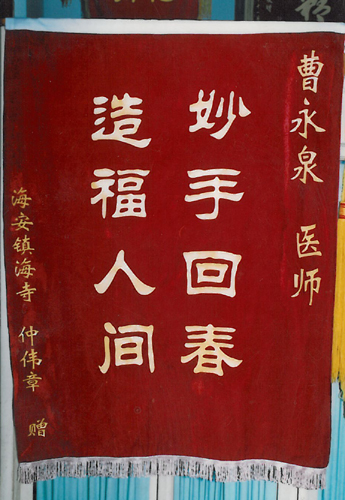 曹永泉 医师
妙手回春
造福人间
海安镇海寺 仲伟章 赠